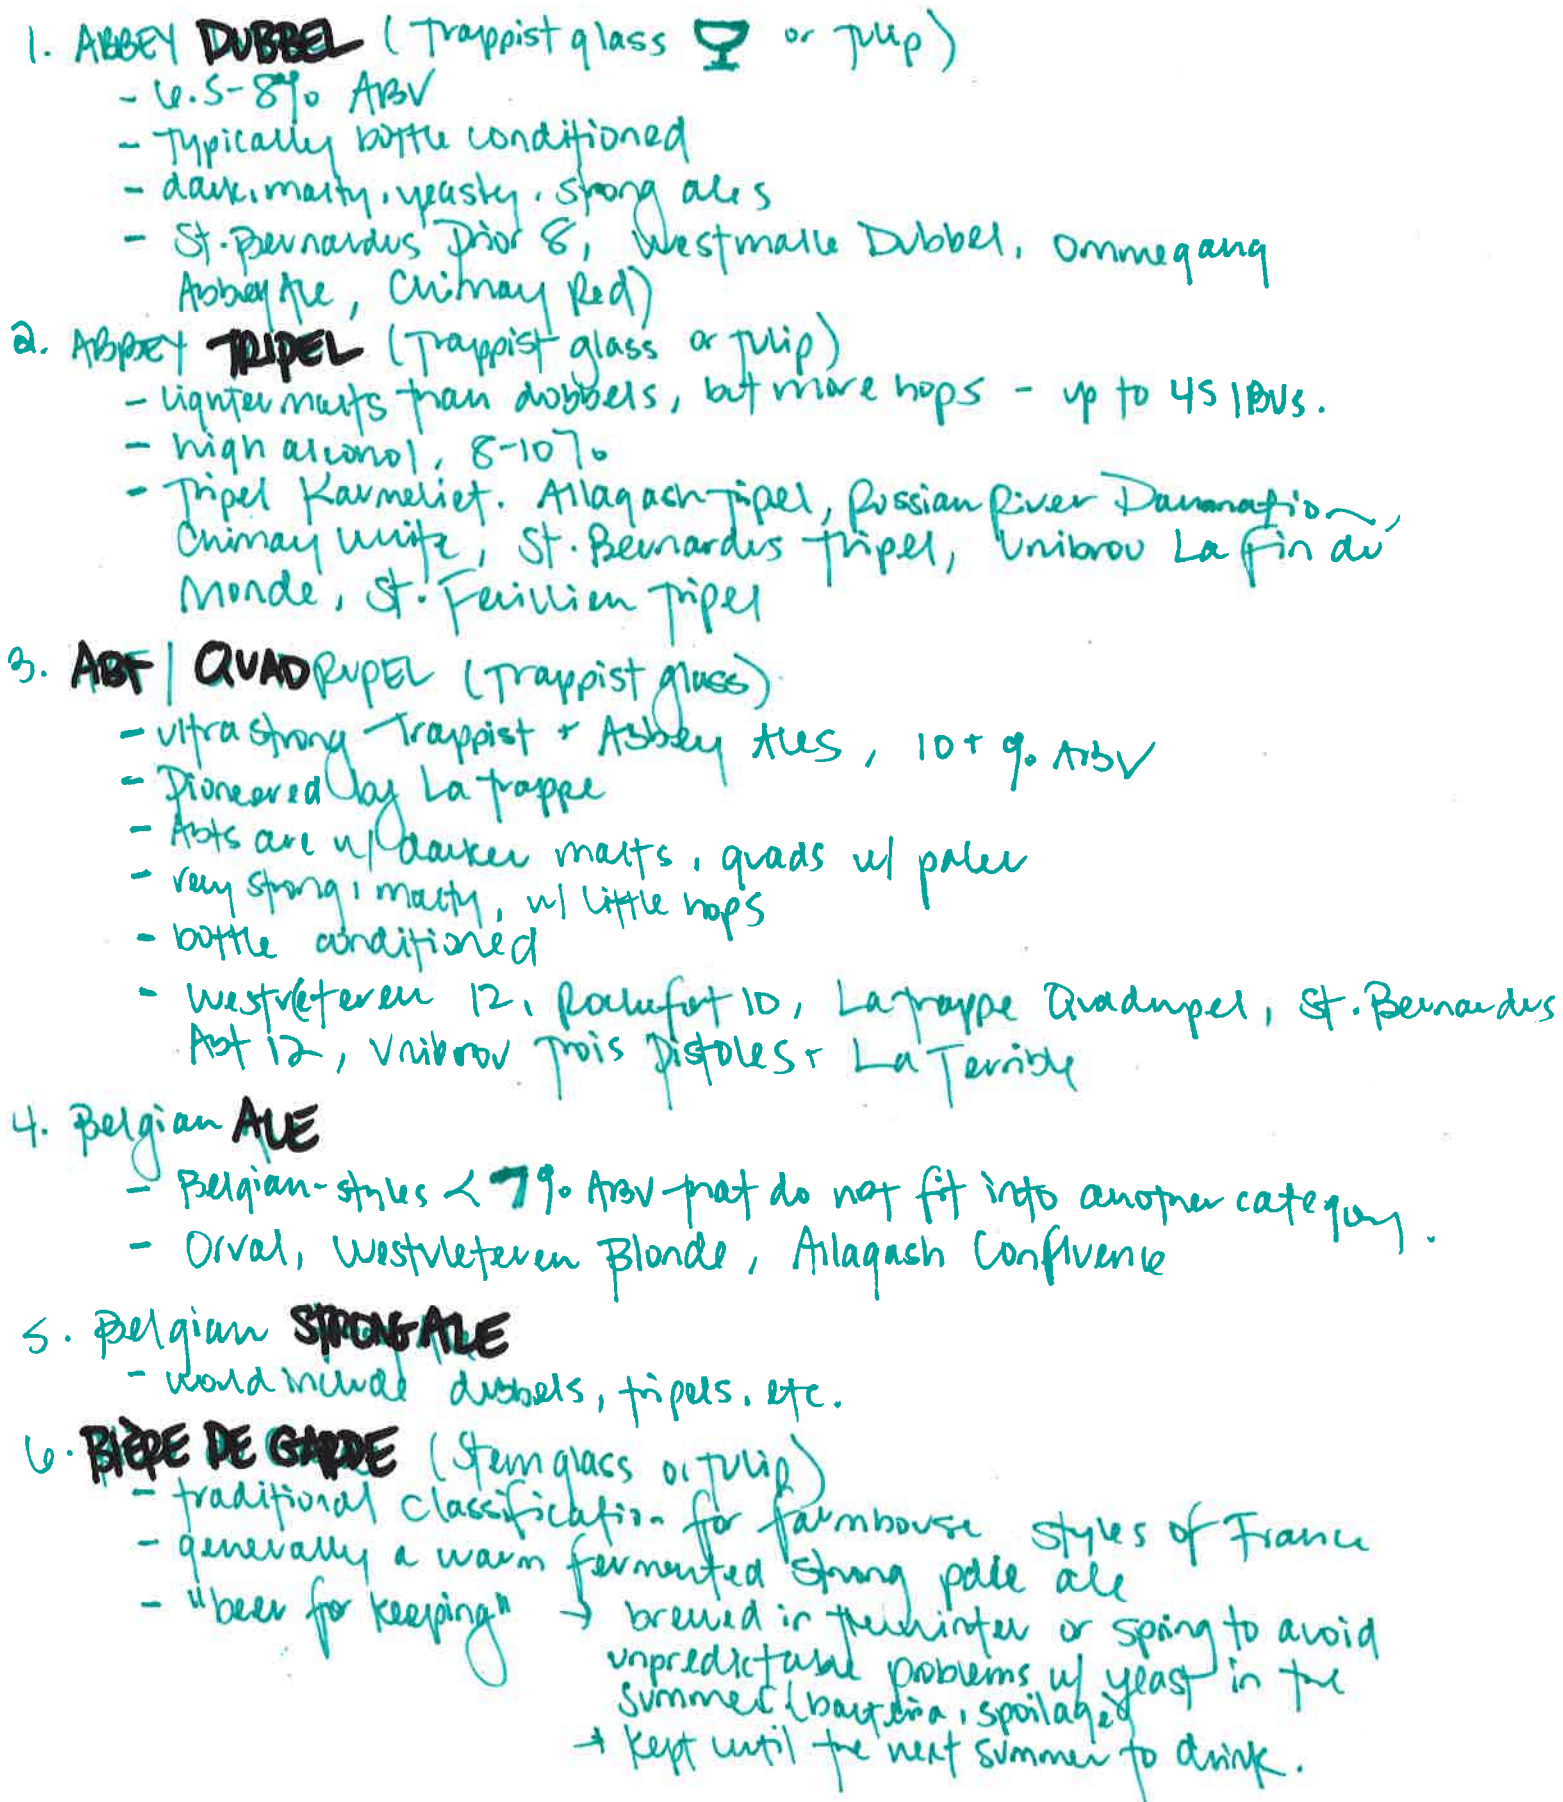 1. ABBEY DUBBEL (Trappist glass or Tulip)
- 6.5-8% ABV
- Typically bottle conditioned
- dark, malty, yeasty, strong ales
- St. Bernardus Prior 8, Westmalle Dubbel, Ommegang
Abbey Ale, Chimay Red)
2. ABBEY TRIPEL (Trappist glass or Tulip)
- lighter malts than dubbels, but more hops - up to 45 IBUs.
- high alcohol, 8-10%
- Tripel Karmeliet. Allagash Tripel, Russian River Damnation,
Chimay White, St. Bernardus Tripel, Unibrou La Fin du
Monde, St. Feuillien Tripel
3. ABT | QUADRUPEL (Trappist glass)
- ultra strong Trappist + Abbey Ales, 10+% ABV
- Pioneered by La Trappe
- Abts are w/ darker malts, quads w/ paler
- very strong, malty, w/ little hops
- bottle conditioned
- Westvleteren 12, Rochefort 10, La Trappe Quadrupel, St. Bernardus
Abt 12, Unibrou Trois Pistoles + La Terrible
4. Belgian ALE
- Belgian-styles < 7% ABV that do not fit into another category.
- Orval, Westvleteren Blonde, Allagash Confluence
5. Belgian STRONG ALE
- would include dubbels, tripels, etc.
6. BIÈRE DE GARDE (Stem glass or Tulip)
- traditional classification for farmhouse styles of France
- generally a warm fermented strong pale ale
- "beer for keeping" → brewed in the winter or spring to avoid
unpredictable problems w/ yeast in the
summer (bacteria, spoilage)
→ kept until the next summer to drink.